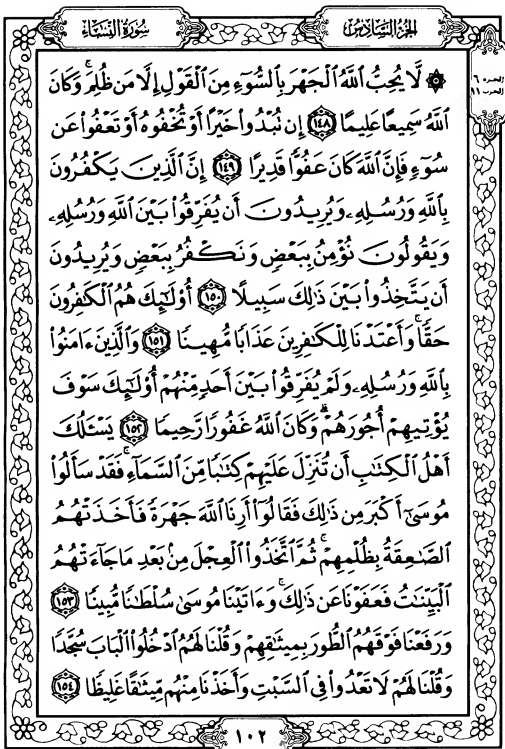 سُورَةُ النِّسَاءِ
الجُزْءُ السَّادِسُ
الجزء ٦
الحزب ١١
۞ لَّا يُحِبُّ اللَّهُ الْجَهْرَ بِالسُّوٓءِ مِنَ الْقَوْلِ إِلَّا مَن ظُلِمَ ۚ وَكَانَ
اللَّهُ سَمِيعًا عَلِيمًا ﴿١٤٨﴾ إِن تُبْدُوا۟ خَيْرًا أَوْ تُخْفُوهُ أَوْ تَعْفُوا۟ عَن
سُوٓءٍ فَإِنَّ اللَّهَ كَانَ عَفُوًّا قَدِيرًا ﴿١٤٩﴾ إِنَّ الَّذِينَ يَكْفُرُونَ
بِاللَّهِ وَرُسُلِهِۦ وَيُرِيدُونَ أَن يُفَرِّقُوا۟ بَيْنَ اللَّهِ وَرُسُلِهِۦ
وَيَقُولُونَ نُؤْمِنُ بِبَعْضٍ وَنَكْفُرُ بِبَعْضٍ وَيُرِيدُونَ
أَن يَتَّخِذُوا۟ بَيْنَ ذَٰلِكَ سَبِيلًا ﴿١٥٠﴾ أُو۟لَٰٓئِكَ هُمُ الْكَٰفِرُونَ
حَقًّا ۚ وَأَعْتَدْنَا لِلْكَٰفِرِينَ عَذَابًا مُّهِينًا ﴿١٥١﴾ وَالَّذِينَ ءَامَنُوا۟
بِاللَّهِ وَرُسُلِهِۦ وَلَمْ يُفَرِّقُوا۟ بَيْنَ أَحَدٍ مِّنْهُمْ أُو۟لَٰٓئِكَ سَوْفَ
يُؤْتِيهِمْ أُجُورَهُمْ ۗ وَكَانَ اللَّهُ غَفُورًا رَّحِيمًا ﴿١٥٢﴾ يَسْـَٔلُكَ
أَهْلُ الْكِتَٰبِ أَن تُنَزِّلَ عَلَيْهِمْ كِتَٰبًا مِّنَ السَّمَآءِ ۚ فَقَدْ سَأَلُوا۟
مُوسَىٰٓ أَكْبَرَ مِن ذَٰلِكَ فَقَالُوٓا۟ أَرِنَا اللَّهَ جَهْرَةً فَأَخَذَتْهُمُ
الصَّٰعِقَةُ بِظُلْمِهِمْ ۚ ثُمَّ اتَّخَذُوا۟ الْعِجْلَ مِنۢ بَعْدِ مَا جَآءَتْهُمُ
الْبَيِّنَٰتُ فَعَفَوْنَا عَن ذَٰلِكَ ۚ وَءَاتَيْنَا مُوسَىٰ سُلْطَٰنًا مُّبِينًا ﴿١٥٣﴾
وَرَفَعْنَا فَوْقَهُمُ الطُّورَ بِمِيثَٰقِهِمْ وَقُلْنَا لَهُمُ ادْخُلُوا۟ الْبَابَ سُجَّدًا
وَقُلْنَا لَهُمْ لَا تَعْدُوا۟ فِى السَّبْتِ وَأَخَذْنَا مِنْهُم مِّيثَٰقًا غَلِيظًا ﴿١٥٤﴾
١٠٢